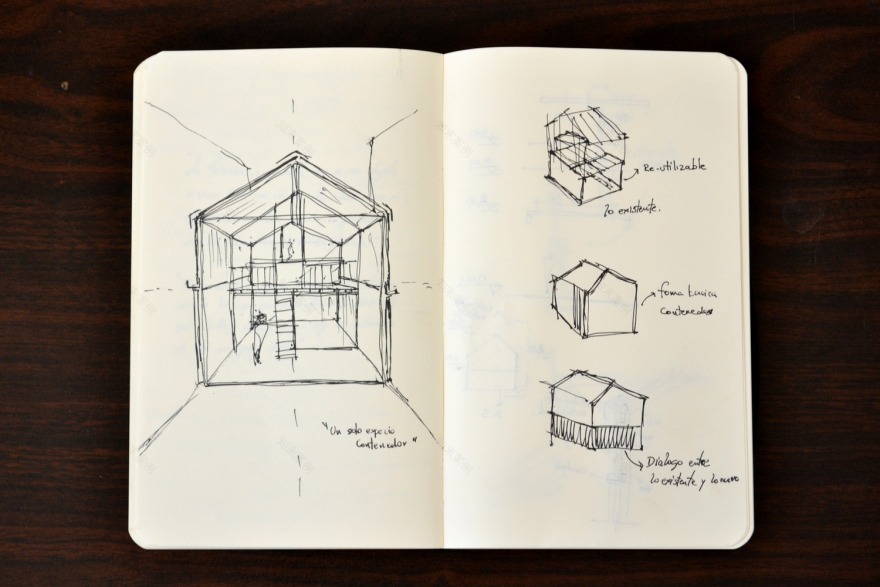 "Un solo espacio
Contenedor"
Re-utilizable
lo existente.
foma
Contenedor
Dialogo entre
lo existente y lo nuevo